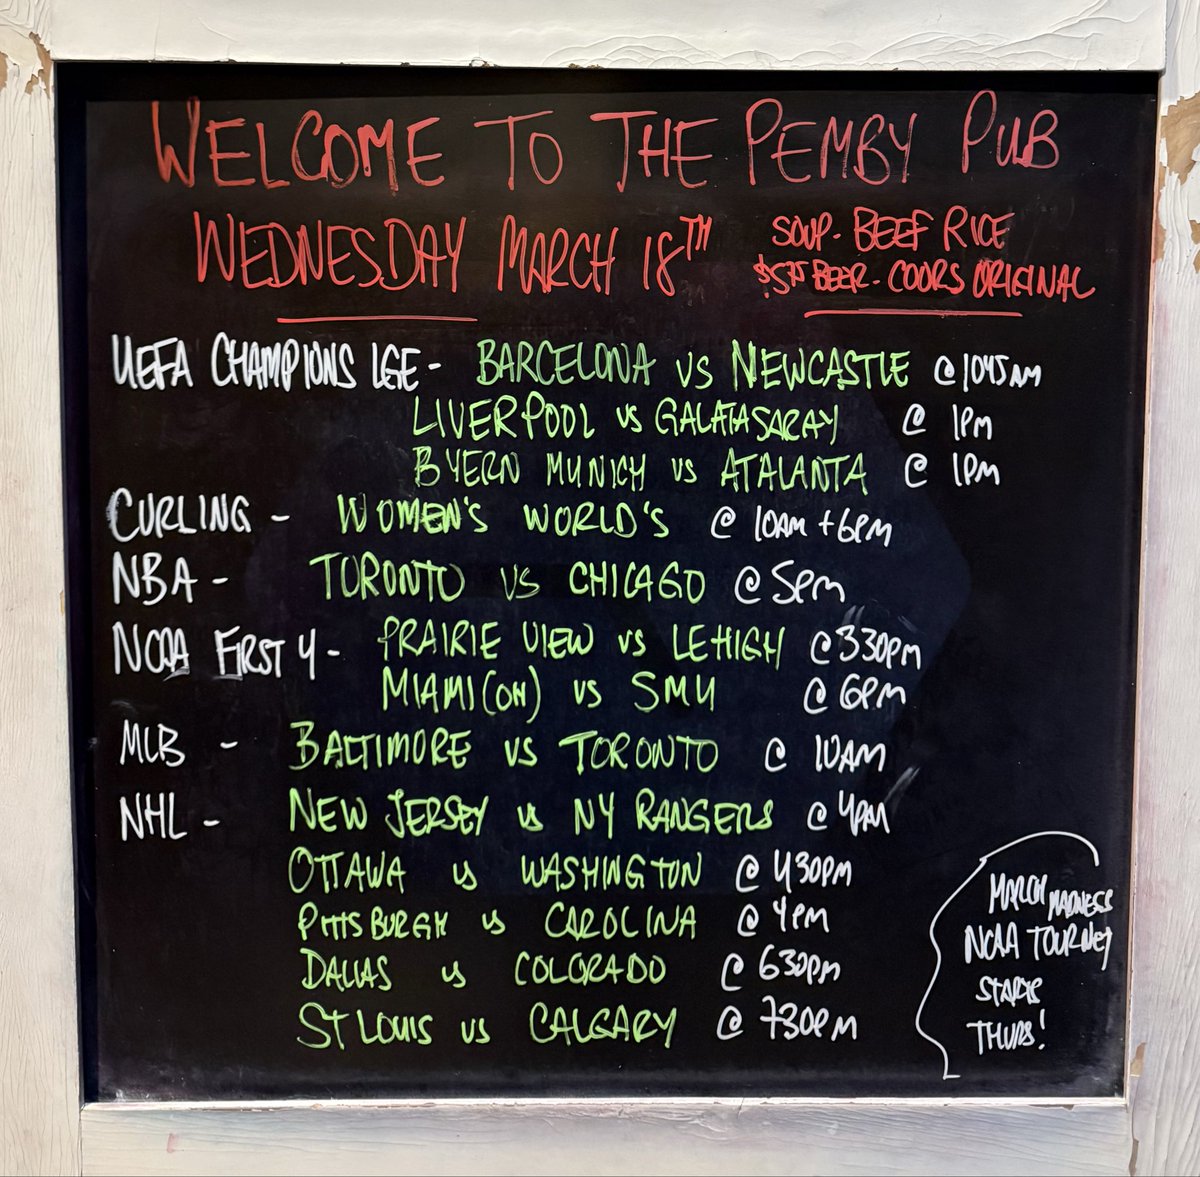 WELCOME TO THE PEMBY PUB
WEDNESDAY MARCH 18TH
SOUP - BEEF RICE
BEER - COORS ORIGINAL
UEFA CHAMPIONS LGE - BARCELONA VS NEWCASTLE @ 1045AM
LIVERPOOL VS GALATASARAY @ 1PM
BYERN MUNICH VS ATALANTA @ 1PM
CURLING - WOMEN'S WORLD'S @ 10AM + 6PM
NBA - TORONTO VS CHICAGO @ 5PM
NCAA FIRST 4 - PRAIRIE VIEW VS LEHIGH @ 330PM
MIAMI (OH) VS SMU @ 6PM
MLB - BALTIMORE VS TORONTO @ 10AM
NHL - NEW JERSEY VS NY RANGERS @ 4PM
OTTAWA VS WASHINGTON @ 430PM
PITTSBURGH VS CAROLINA @ 4PM
DALLAS VS COLORADO @ 630PM
ST LOUIS VS CALGARY @ 730PM
MARCH MADNESS
NCAA TOURNEY
STARTS
THURS!